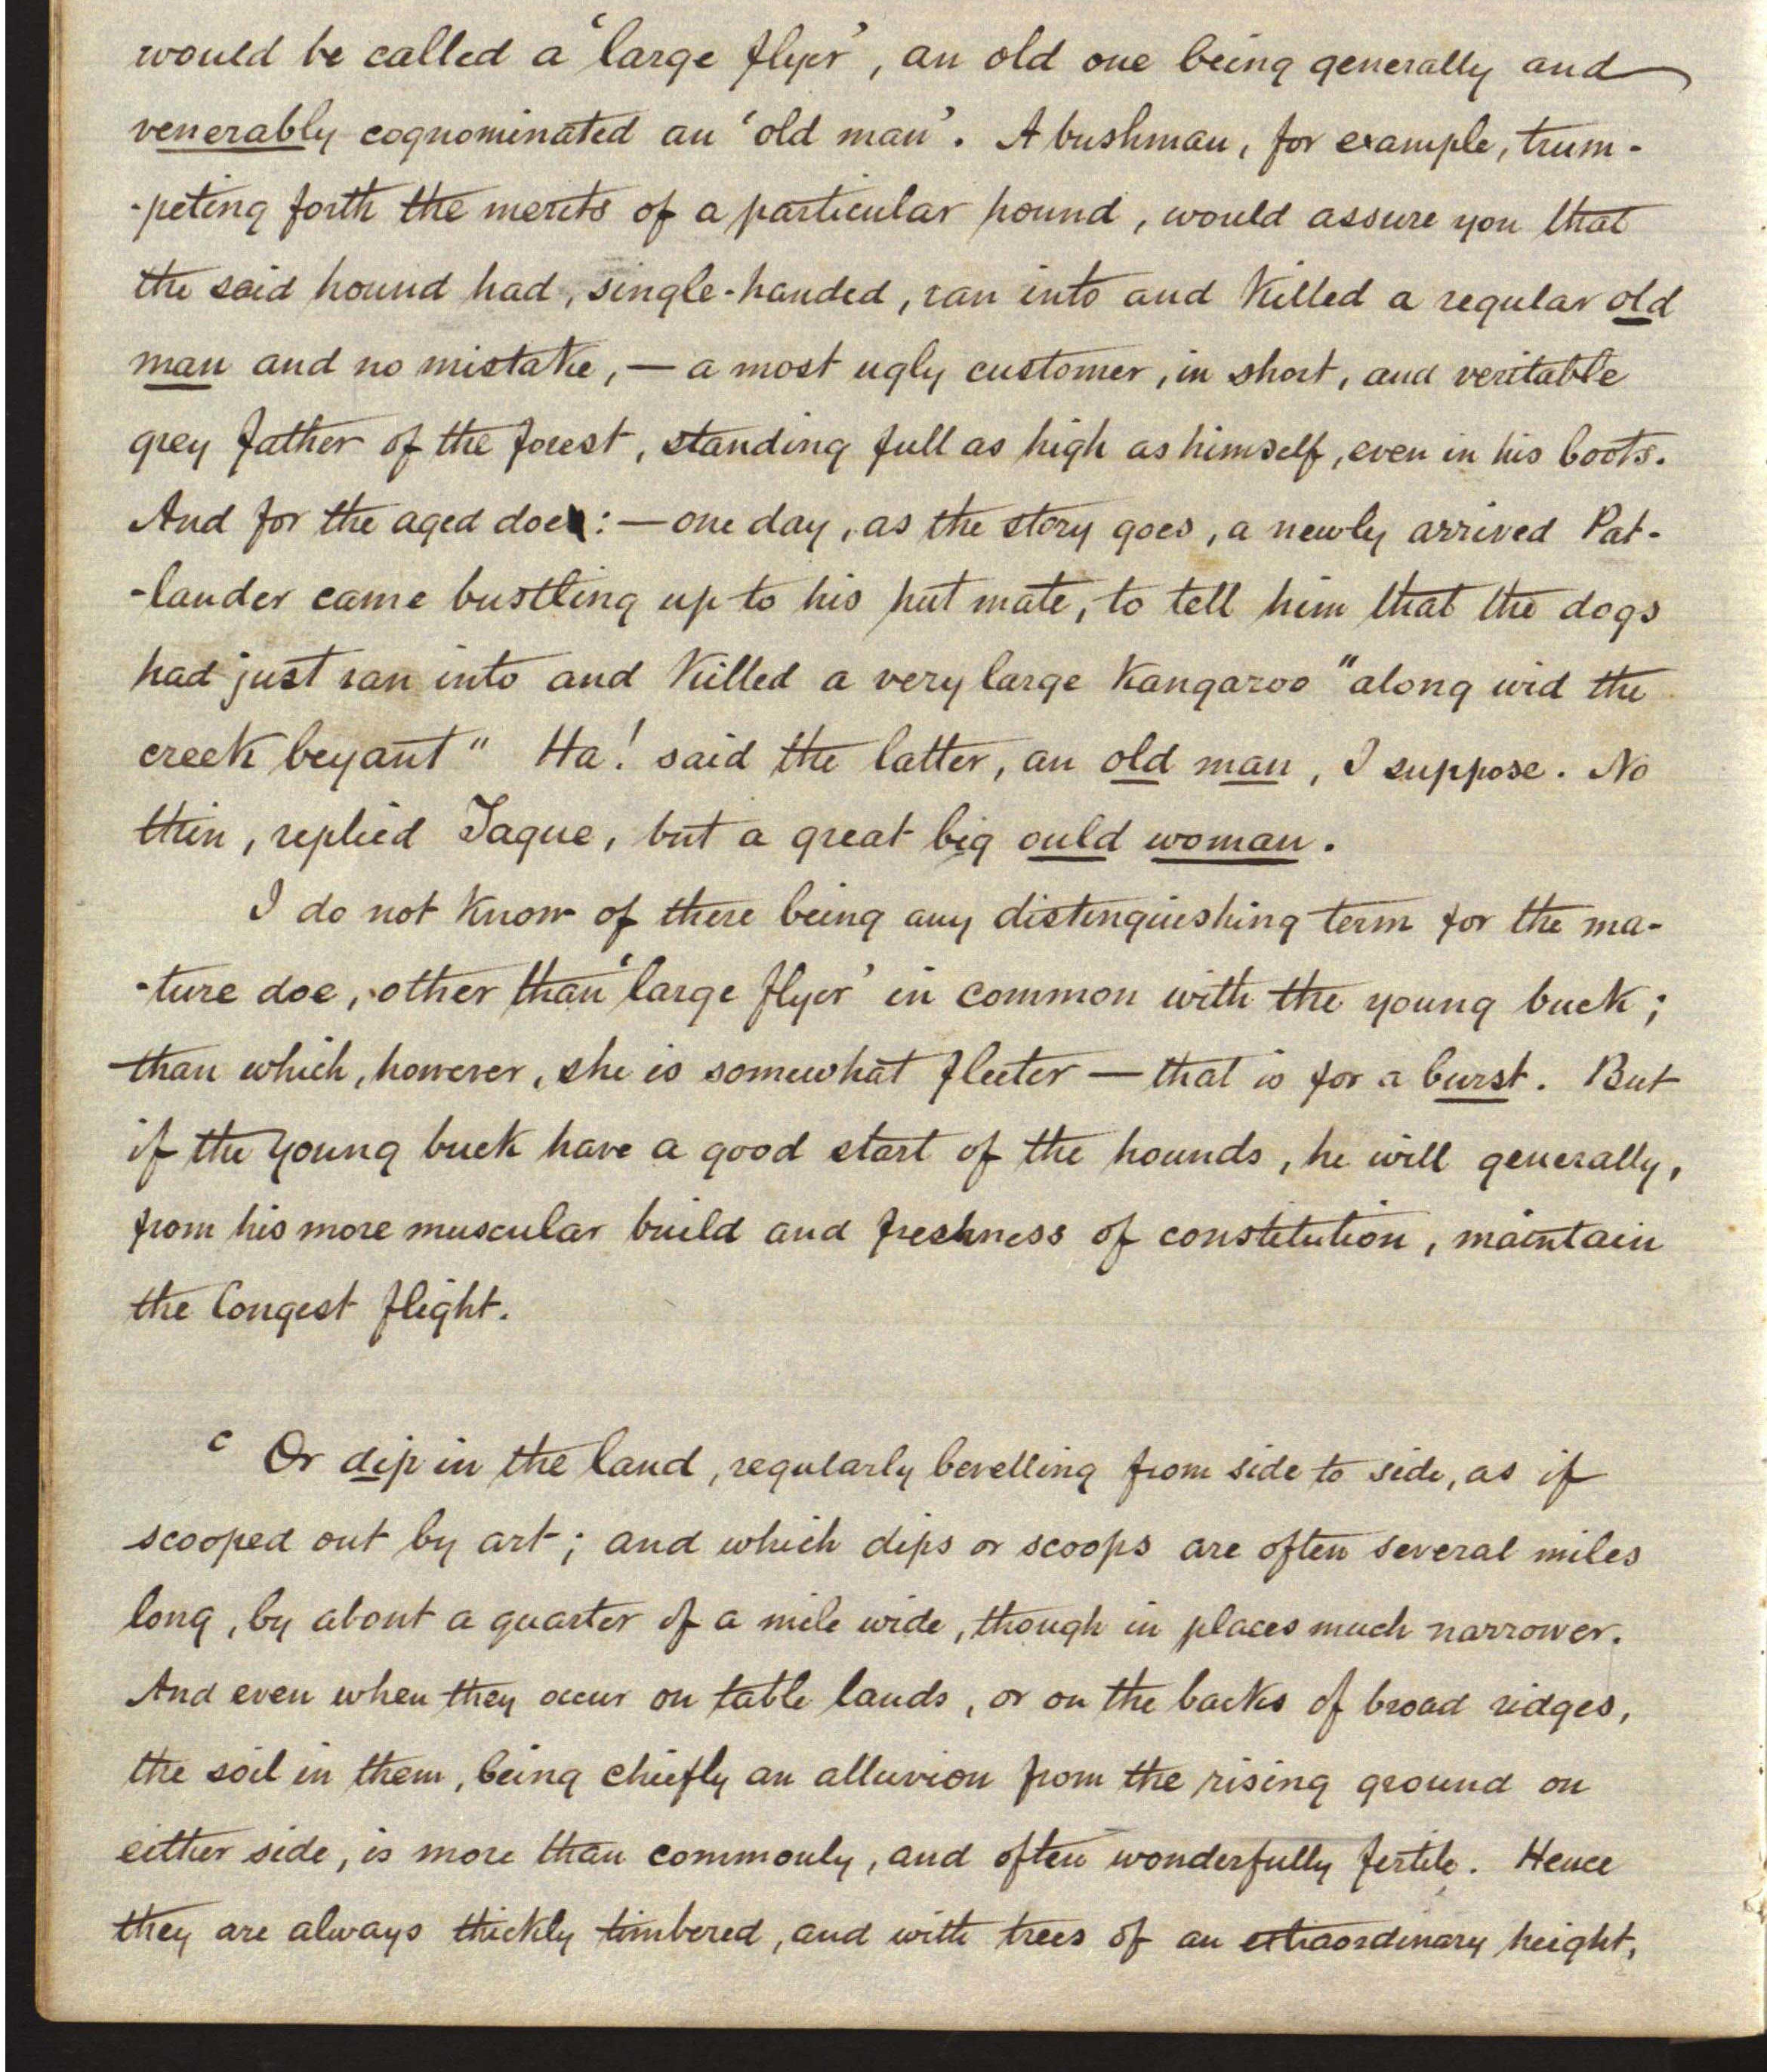 would be called a 'large flyer', an old one being generally and
venerably cognominated an 'old man'. A bushman, for example, trum-
-peting forth the merits of a particular hound, would assure you that
the said hound had, single-handed, ran into and killed a regular old
man and no mistake, — a most ugly customer, in short, and veritable
grey father of the forest, standing full as high as himself, even in his boots.
And for the aged doe: — one day, as the story goes, a newly arrived Pat-
-lander came bustling up to his hut mate, to tell him that the dogs
had just ran into and killed a very large Kangaroo "along wid the
creek beyant" Ha! said the latter, an old man, I suppose. No
thin, replied Tague, but a great big ould woman.
I do not know of there being any distinguishing term for the ma-
-ture doe, other than 'large flyer' in common with the young buck;
than which, however, she is somewhat fleeter — that is for a burst. But
if the young buck have a good start of the hounds, he will generally,
from his more muscular build and freshness of constitution, maintain
the longest flight.
c Or dip in the land, regularly bevelling from side to side, as if
scooped out by art; and which dips or scoops are often several miles
long, by about a quarter of a mile wide, though in places much narrower.
And even when they occur on table lands, or on the backs of broad ridges,
the soil in them, being chiefly an alluvion from the rising ground on
either side, is more than commonly, and often wonderfully fertile. Hence
they are always thickly timbered, and with trees of an extraordinary height,